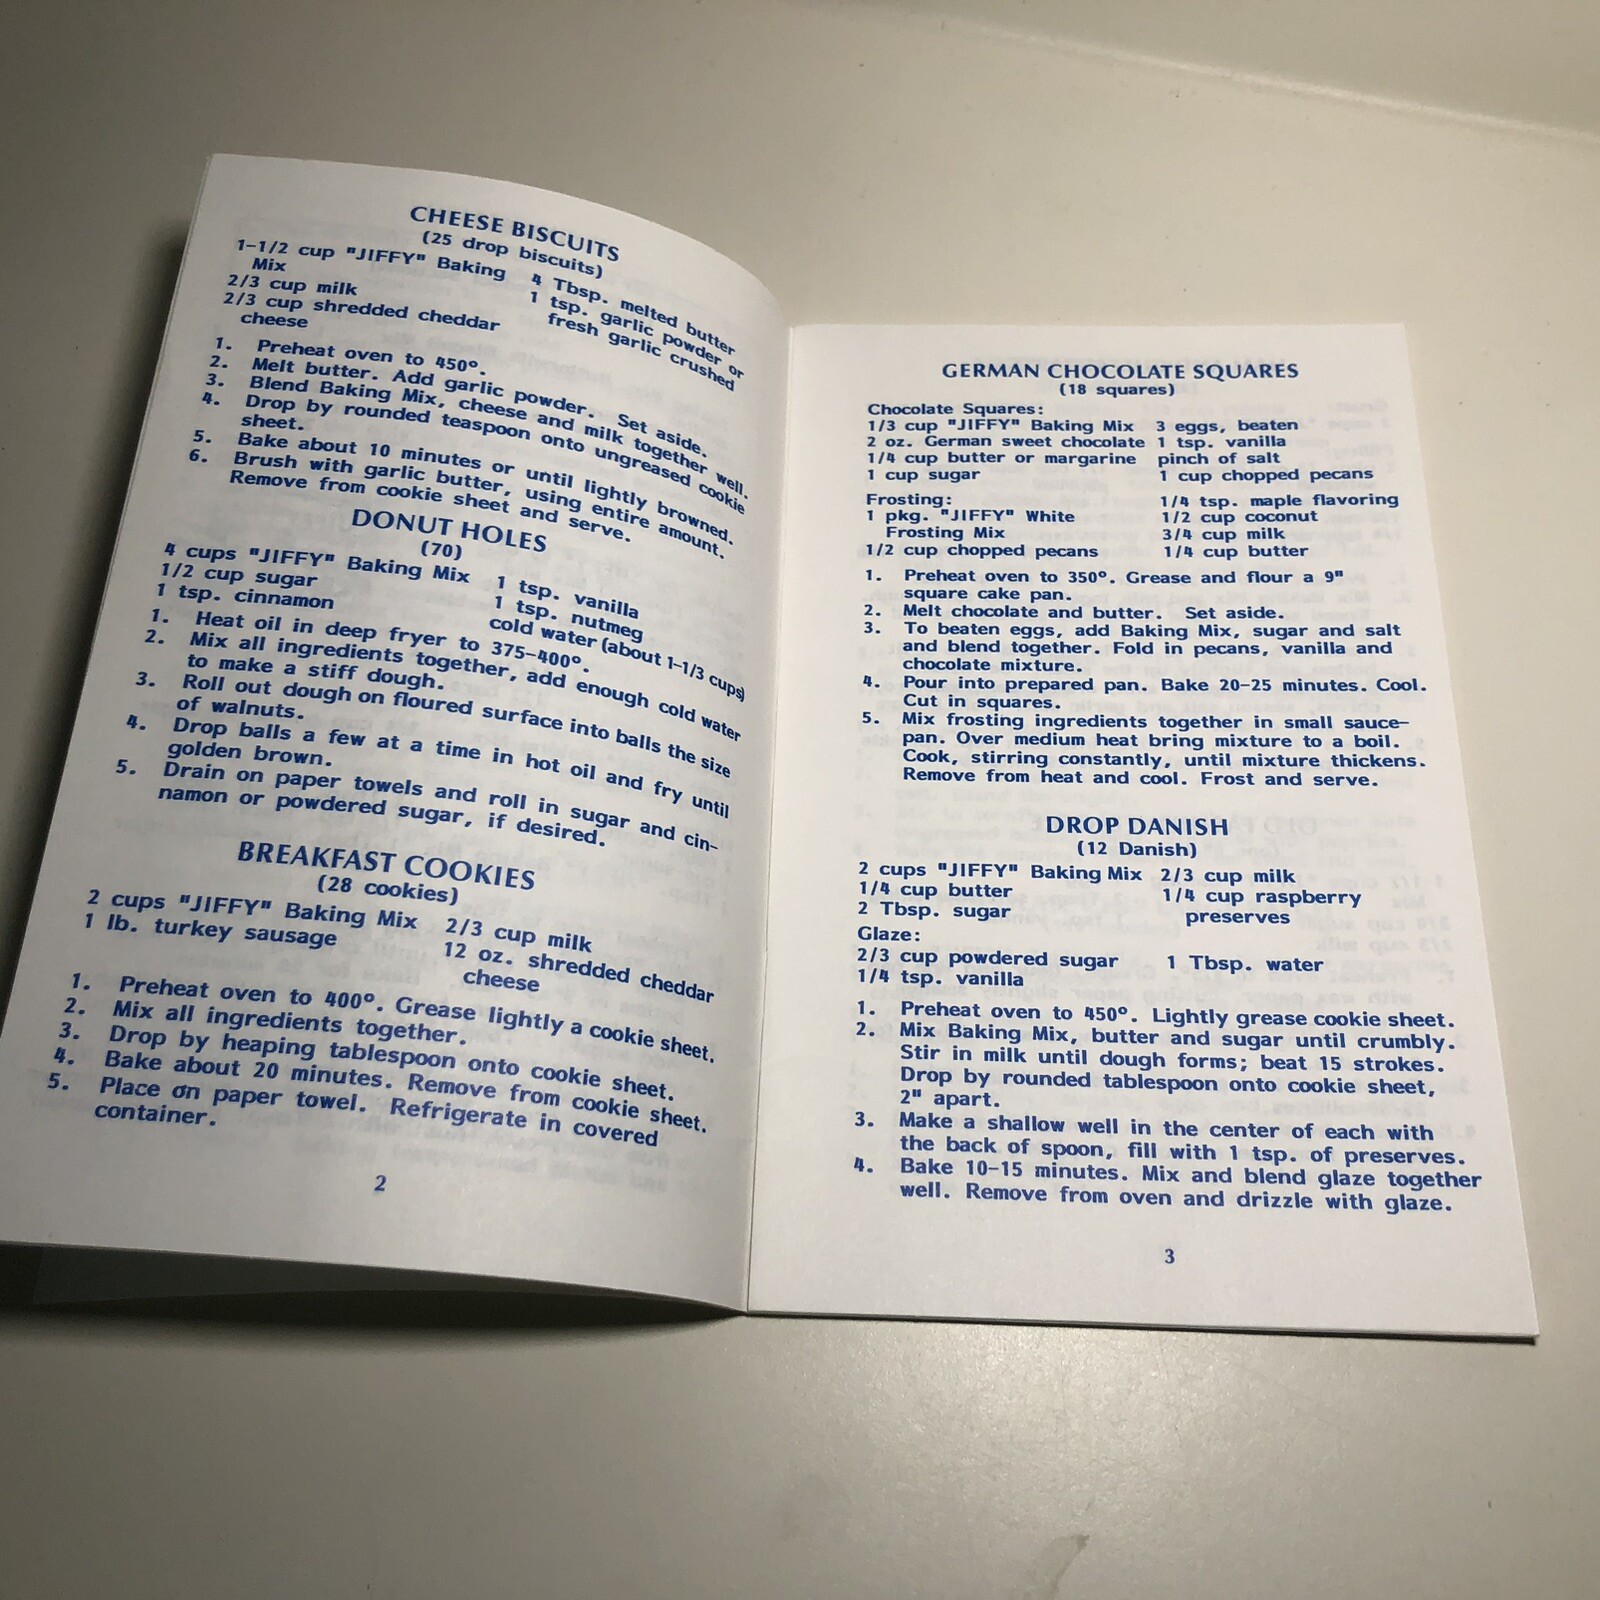 CHEESE BISCUITS
(25 drop biscuits)
1-1/2 cup "JIFFY" Baking
Mix
2/3 cup milk
2/3 cup shredded cheddar
cheese
4 Tbsp. melted butter
1 tsp. garlic powder or
fresh garlic crushed
1. Preheat oven to 450°.
2. Melt butter. Add garlic powder. Set aside.
3. Blend Baking Mix, cheese and milk together well.
4. Drop by rounded teaspoon onto ungreased cookie
sheet.
5. Bake about 10 minutes or until lightly browned.
6. Brush with garlic butter, using entire amount.
Remove from cookie sheet and serve.
DONUT HOLES
(70)
4 cups "JIFFY" Baking Mix
1/2 cup sugar
1 tsp. cinnamon
1 tsp. vanilla
1 tsp. nutmeg
cold water (about 1-1/3 cups)
1. Heat oil in deep fryer to 375-400°.
2. Mix all ingredients together, add enough cold water
to make a stiff dough.
3. Roll out dough on floured surface into balls the size
of walnuts.
4. Drop balls a few at a time in hot oil and fry until
golden brown.
5. Drain on paper towels and roll in sugar and cin-
namon or powdered sugar, if desired.
BREAKFAST COOKIES
(28 cookies)
2 cups "JIFFY" Baking Mix
1 lb. turkey sausage
2/3 cup milk
12 oz. shredded cheddar
cheese
1. Preheat oven to 400°. Grease lightly a cookie sheet.
2. Mix all ingredients together.
3. Drop by heaping tablespoon onto cookie sheet.
4. Bake about 20 minutes. Remove from cookie sheet.
5. Place on paper towel. Refrigerate in covered
container.
2
GERMAN CHOCOLATE SQUARES
(18 squares)
Chocolate Squares:
1/3 cup "JIFFY" Baking Mix
2 oz. German sweet chocolate
1/4 cup butter or margarine
1 cup sugar
3 eggs, beaten
1 tsp. vanilla
pinch of salt
1 cup chopped pecans
Frosting:
1 pkg. "JIFFY" White
Frosting Mix
1/2 cup chopped pecans
1/4 tsp. maple flavoring
1/2 cup coconut
3/4 cup milk
1/4 cup butter
1. Preheat oven to 350°. Grease and flour a 9"
square cake pan.
2. Melt chocolate and butter. Set aside.
3. To beaten eggs, add Baking Mix, sugar and salt
and blend together. Fold in pecans, vanilla and
chocolate mixture.
4. Pour into prepared pan. Bake 20-25 minutes. Cool.
Cut in squares.
5. Mix frosting ingredients together in small sauce-
pan. Over medium heat bring mixture to a boil.
Cook, stirring constantly, until mixture thickens.
Remove from heat and cool. Frost and serve.
DROP DANISH
(12 Danish)
2 cups "JIFFY" Baking Mix
1/4 cup butter
2 Tbsp. sugar
2/3 cup milk
1/4 cup raspberry
preserves
Glaze:
2/3 cup powdered sugar
1/4 tsp. vanilla
1 Tbsp. water
1. Preheat oven to 450°. Lightly grease cookie sheet.
2. Mix Baking Mix, butter and sugar until crumbly.
Stir in milk until dough forms; beat 15 strokes.
Drop by rounded tablespoon onto cookie sheet,
2" apart.
3. Make a shallow well in the center of each with
the back of spoon, fill with 1 tsp. of preserves.
4. Bake 10-15 minutes. Mix and blend glaze together
well. Remove from oven and drizzle with glaze.
3